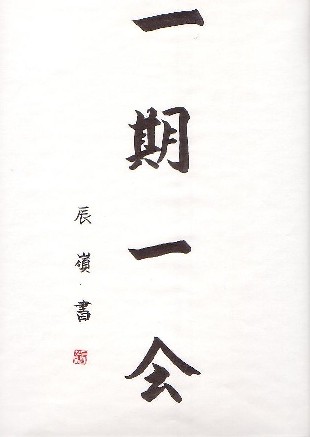 一期一会
辰嶺書